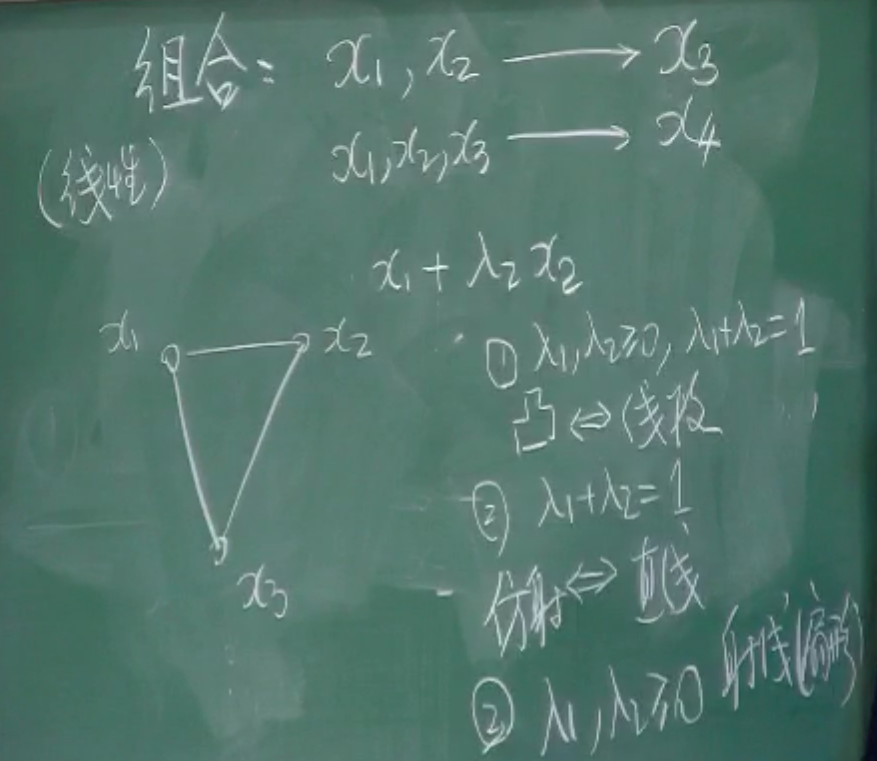 组合: x₁, x₂ ⟶ x₃
(线性) x₁, x₂, x₃ ⟶ x₄
x₁ + λ₂ x₂
x₁ x₂
① λ₁, λ₂ ≥ 0, λ₁+λ₂ = 1
凸 ⇔ 线段
② λ₁+λ₂ = 1
仿射 ⇔ 直线
x₃
② λ₁, λ₂ ≥ 0 射线(扇形)